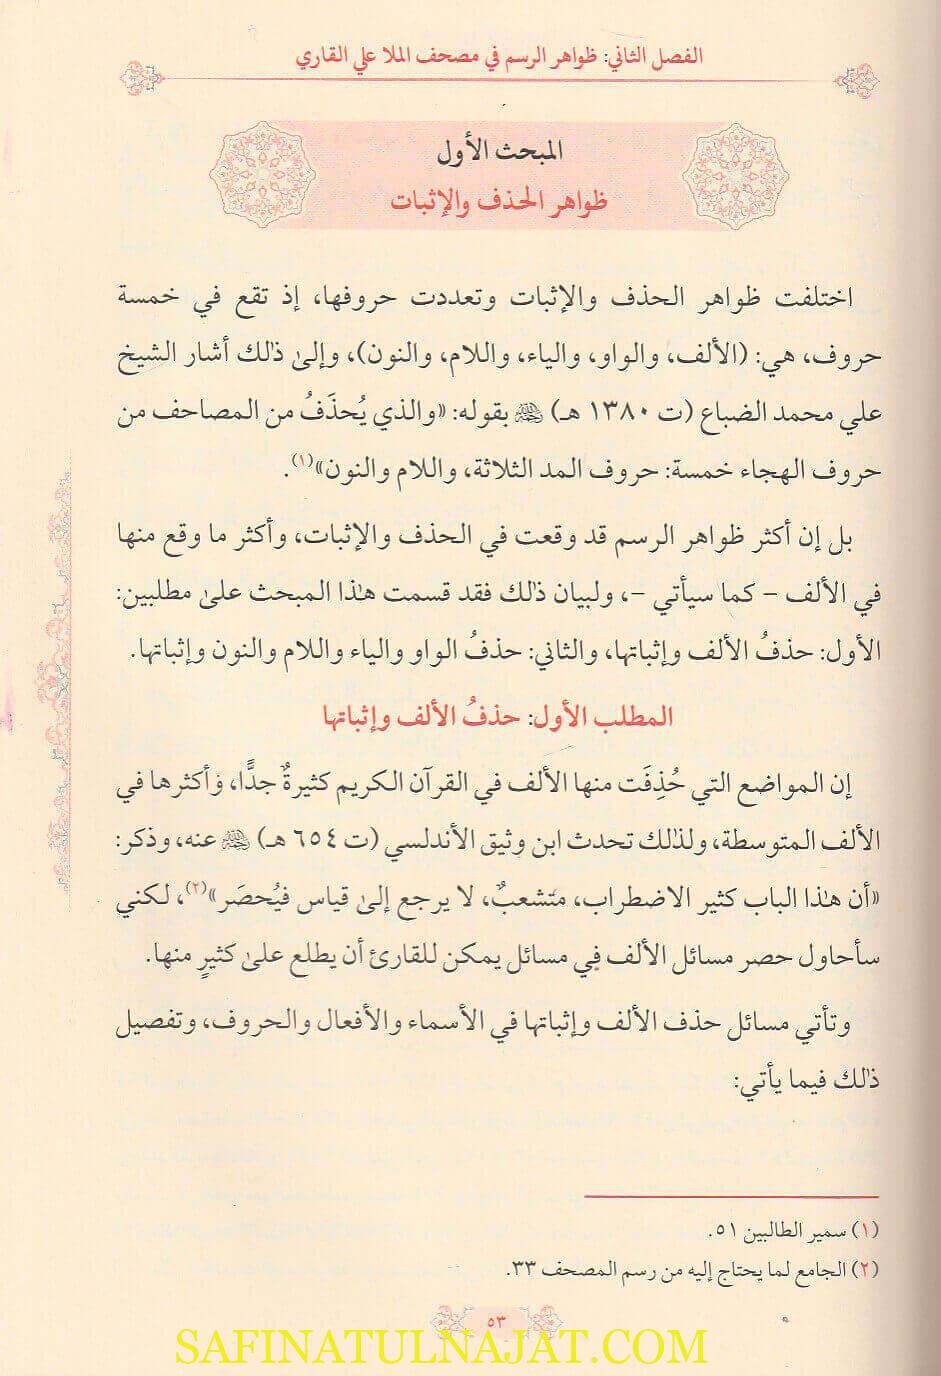 الفصل الثاني: ظواهر الرسم في مصحف الملا علي القاري
المبحث الأول
ظواهر الحذف والإثبات
اختلفت ظواهر الحذف والإثبات وتعددت حروفها، إذ تقع في خمسة
حروف، هي: (الألف، والواو، والياء، واللام، والنون)، وإلىٰ ذٰلك أشار الشيخ
علي محمد الضباع (ت ١٣٨٠ هـ) ﵀ بقوله: «والذي يُحذَفُ من المصاحف من
حروف الهجاء خمسة: حروف المد الثلاثة، واللام والنون»(١).
بل إن أكثر ظواهر الرسم قد وقعت في الحذف والإثبات، وأكثر ما وقع منها
في الألف – كما سيأتي –، ولبيان ذٰلك فقد قسمت هٰذا المبحث علىٰ مطلبين:
الأول: حذفُ الألف وإثباتها، والثاني: حذفُ الواو والياء واللام والنون وإثباتها.
المطلب الأول: حذفُ الألف وإثباتها
إن المواضع التي حُذِفَت منها الألف في القرآن الكريم كثيرةٌ جدًّا، وأكثرها في
الألف المتوسطة، ولذٰلك تحدث ابن وثيق الأندلسي (ت ٦٥٤ هـ) ﵀ عنه، وذكر:
«أن هٰذا الباب كثير الاضطراب، متشعبٌ، لا يرجع إلىٰ قياس فيُحصَر»(٢)، لكني
سأحاول حصر مسائل الألف في مسائل يمكن للقارئ أن يطلع علىٰ كثيرٍ منها.
وتأتي مسائل حذف الألف وإثباتها في الأسماء والأفعال والحروف، وتفصيل
ذٰلك فيما يأتي:
(١) سمير الطالبين ٥١.
(٢) الجامع لما يحتاج إليه من رسم المصحف ٣٣.
٥٣
SAFINATULNAJAT.COM